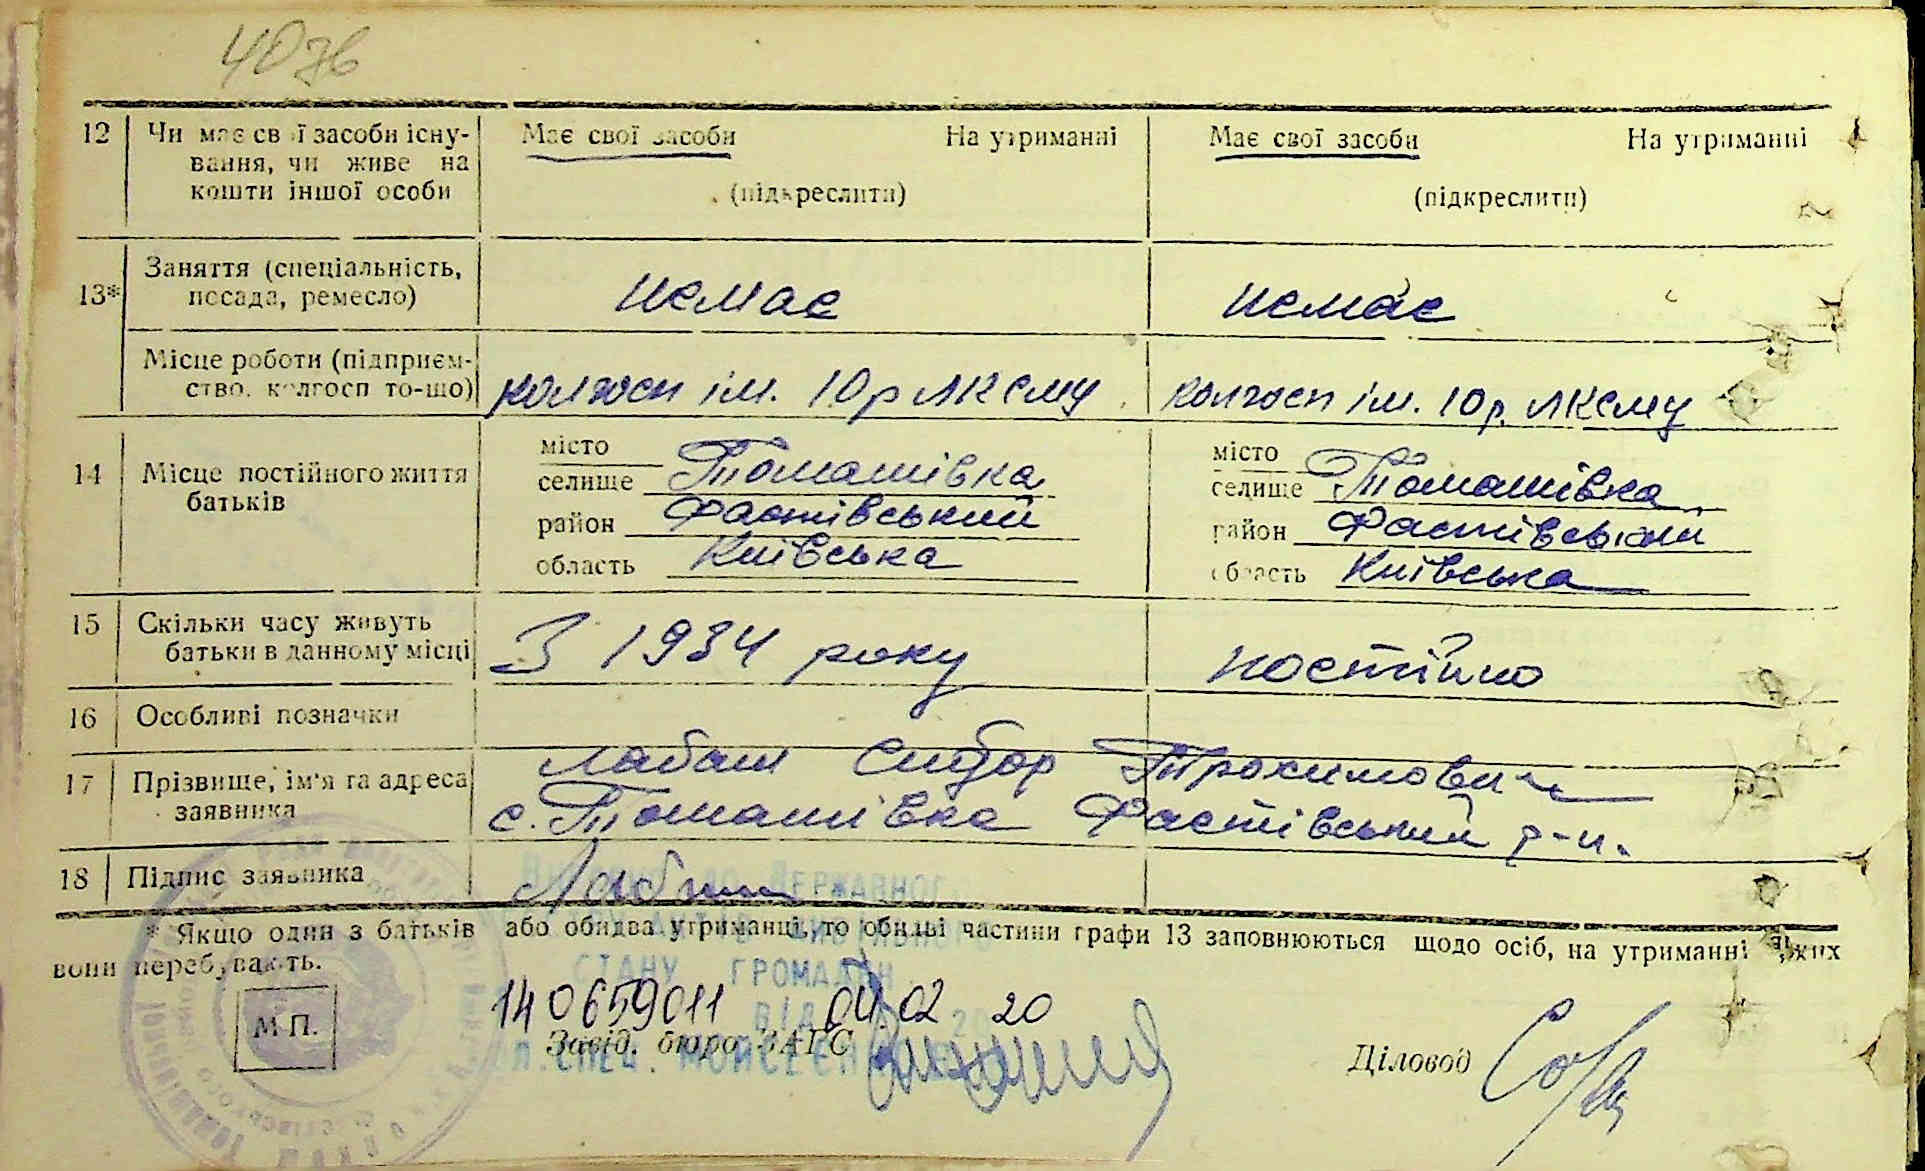 407б
12 Чи має свої засоби існу- Має свої засоби На утриманні Має свої засоби На утриманні
вання, чи живе на
кошти іншої особи (підкреслити) (підкреслити)
Заняття (спеціальність,
13* посада, ремесло) немає немає
Місце роботи (підприєм-
ство, колгосп то-що) колгосп ім. 10 р ЛКСМУ колгосп ім. 10 р. ЛКСМУ
місто місто
14 Місце постійного життя селище Томашівка селище Томашівка
батьків район Фастівський район Фастівський
область Київська область Київська
15 Скільки часу живуть
батьки в данному місці З 1934 року постійно
16 Особливі позначки
17 Прізвище, ім'я та адреса Лабаш Сидор Трохимович
заявника с. Томашівка Фастівський р-н.
18 Підпис заявника Лабаш
* Якщо один з батьків або обидва утриманці, то обидві частини графи 13 заповнюються щодо осіб, на утриманні яких
вони перебувають.
Державного
СТАНУ ГРОМАДЯН
ВІД 20
140659011 04 02 20
М.П. Завід. бюро ЗАГС Діловод